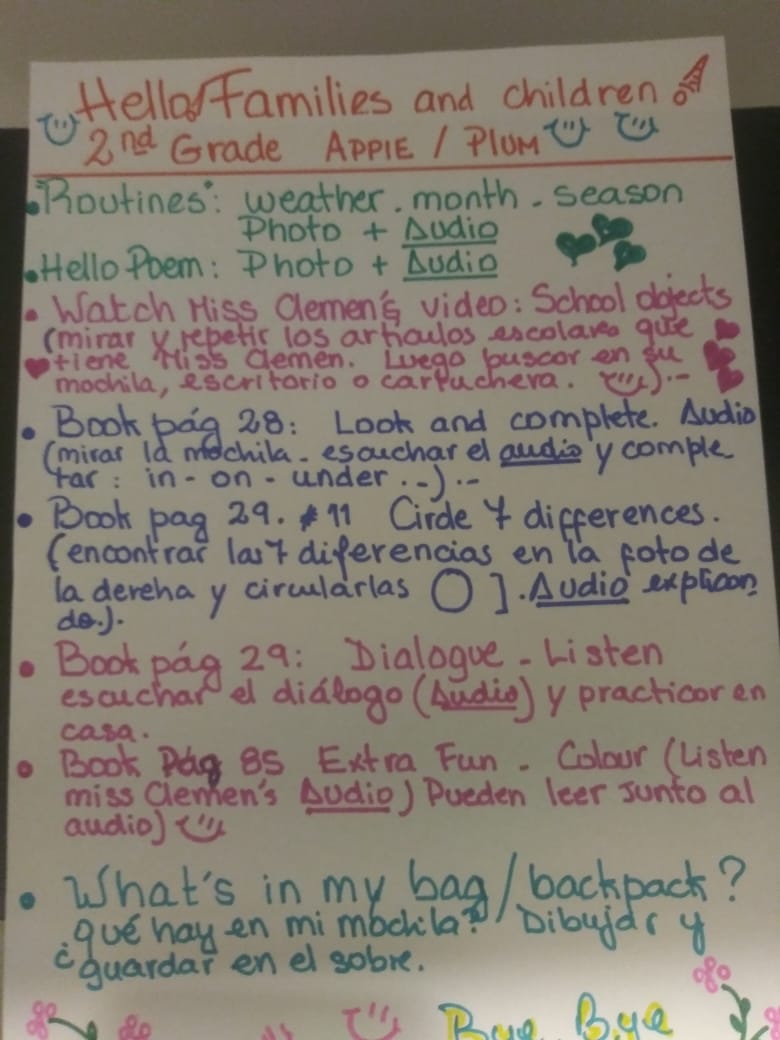 Hello Families and children
2nd Grade APPlE / PlUM
• "Routines": weather. month. season
Photo + Audio
• Hello Poem: Photo + Audio
• Watch Miss Clemen's video: School objects
(mirar y repetir los artículos escolares que
tiene Miss Clemen. Luego buscar en su
mochila, escritorio o cartuchera. ).-
• Book pág 28: Look and complete. Audio
(mirar la mochila - escuchar el audio y comple
tar: in - on - under..-).-
• Book pag 29. # 11 Circle 7 differences.
(encontrar las 7 diferencias en la foto de
la dereha y circularlas O ]. Audio explican
do.).
• Book pág 29: Dialogue - Listen
escuchar el diálogo (Audio) y practicar en
casa.
• Book Pág 85 Extra Fun - Colour (Listen
miss Clemen's Audio) Pueden leer junto al
audio)
• What's in my bag/backpack?
¿qué hay en mi mochila? Dibujar y
guardar en el sobre.
Bye Bye